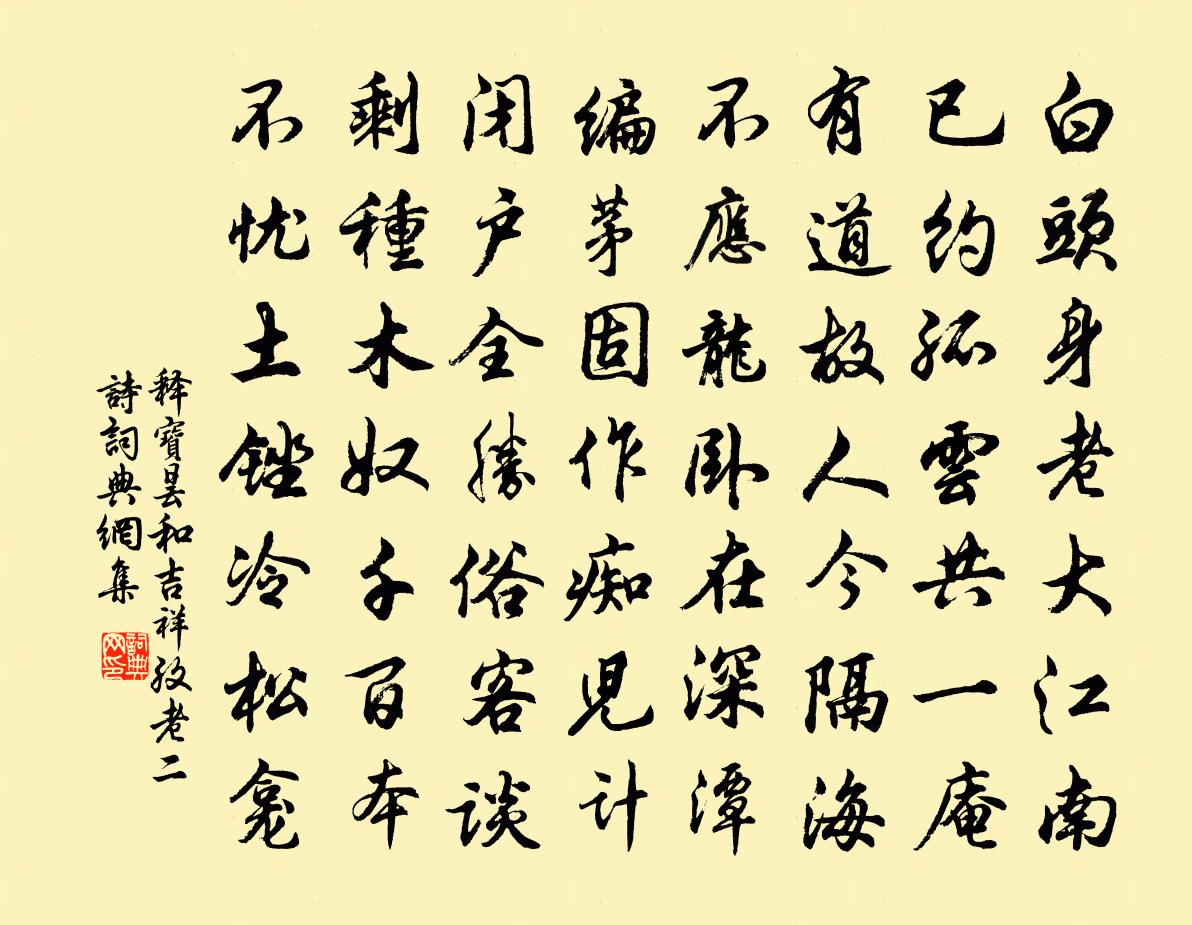 白頭身老大江南
已約孤雲共一庵
有道故人今隔海
不應龍卧在深潭
編茅固作痴児計
闭户全勝俗客谈
剩種木奴千百本
不忧土銼冷松龛
释寶昙和吉祥孜老二
詩詞典網集
詞典网印